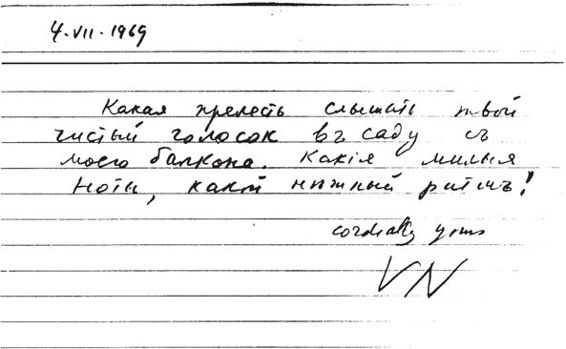 4·VII·1969
Какая прелесть слышать твой
чистый голосок въ саду съ
моего балкона. Какія милыя
ноты, какой нѣжный ритмъ!
cordially yours
VN